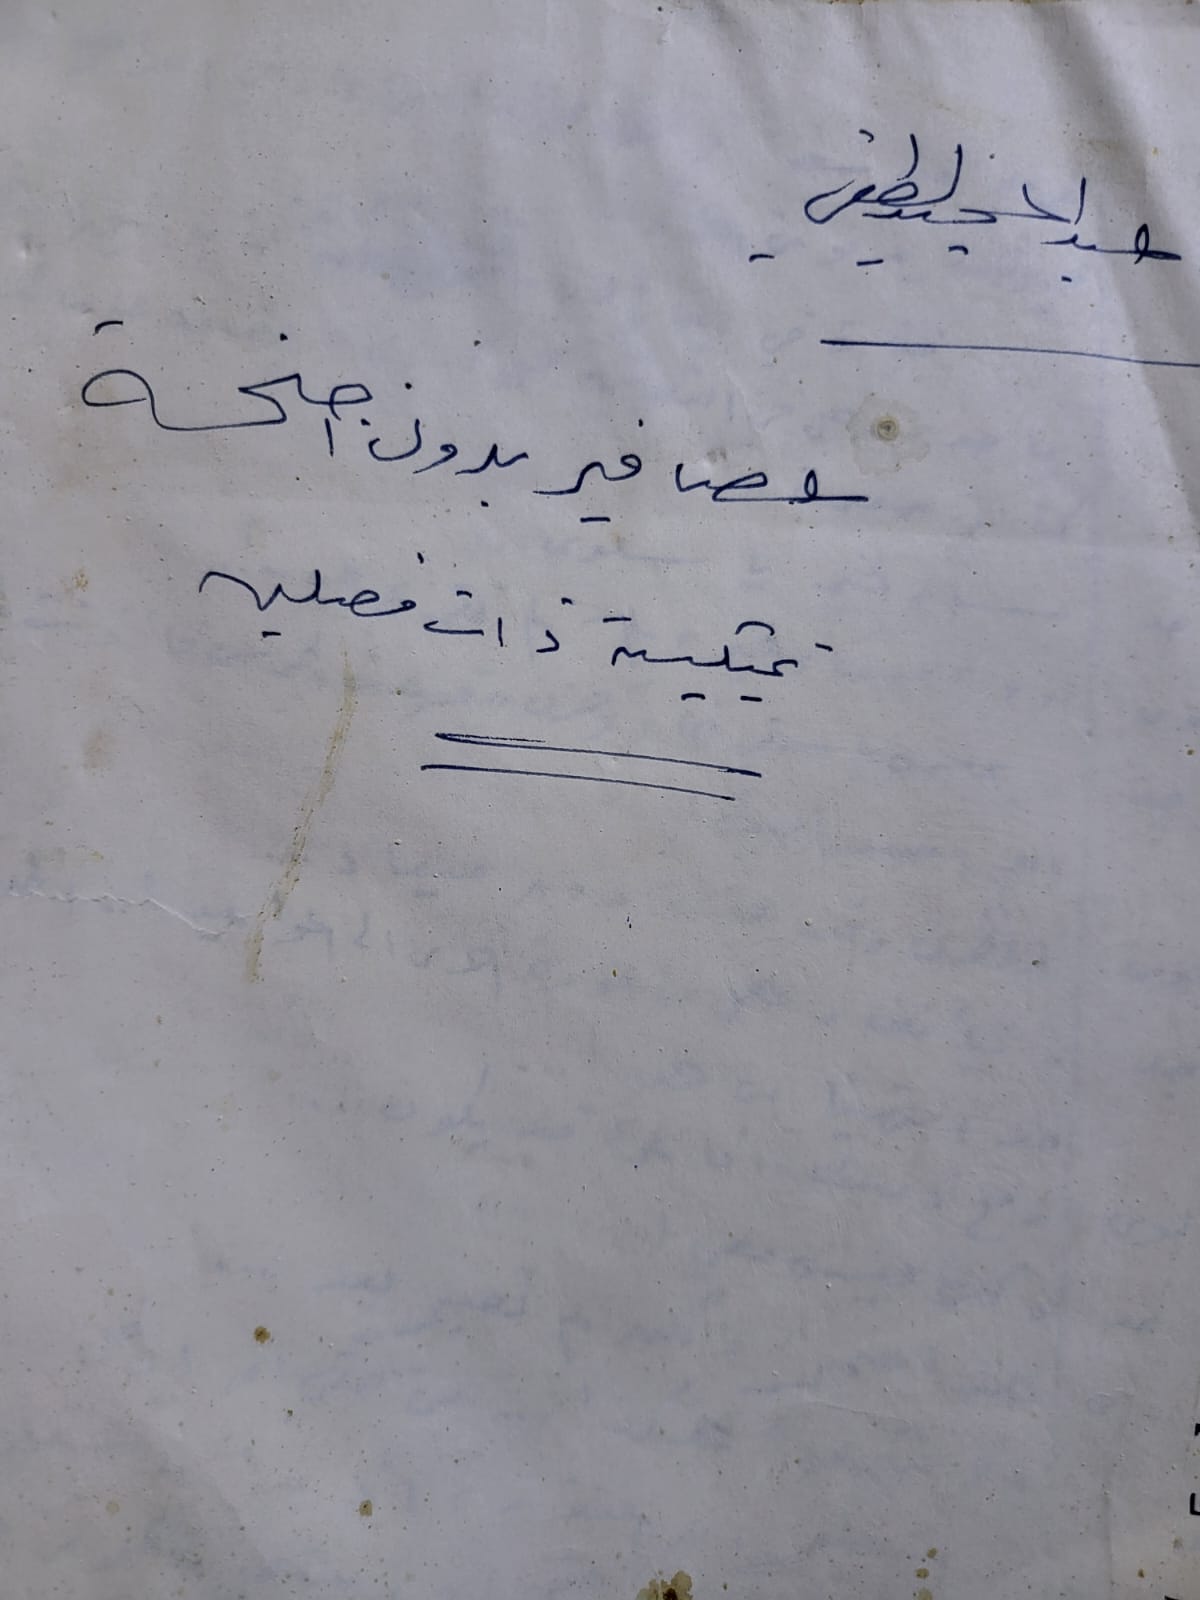 عبد المجيد لطفي
عصافير بدون اجنحة
تمثيلية ذات فصلين